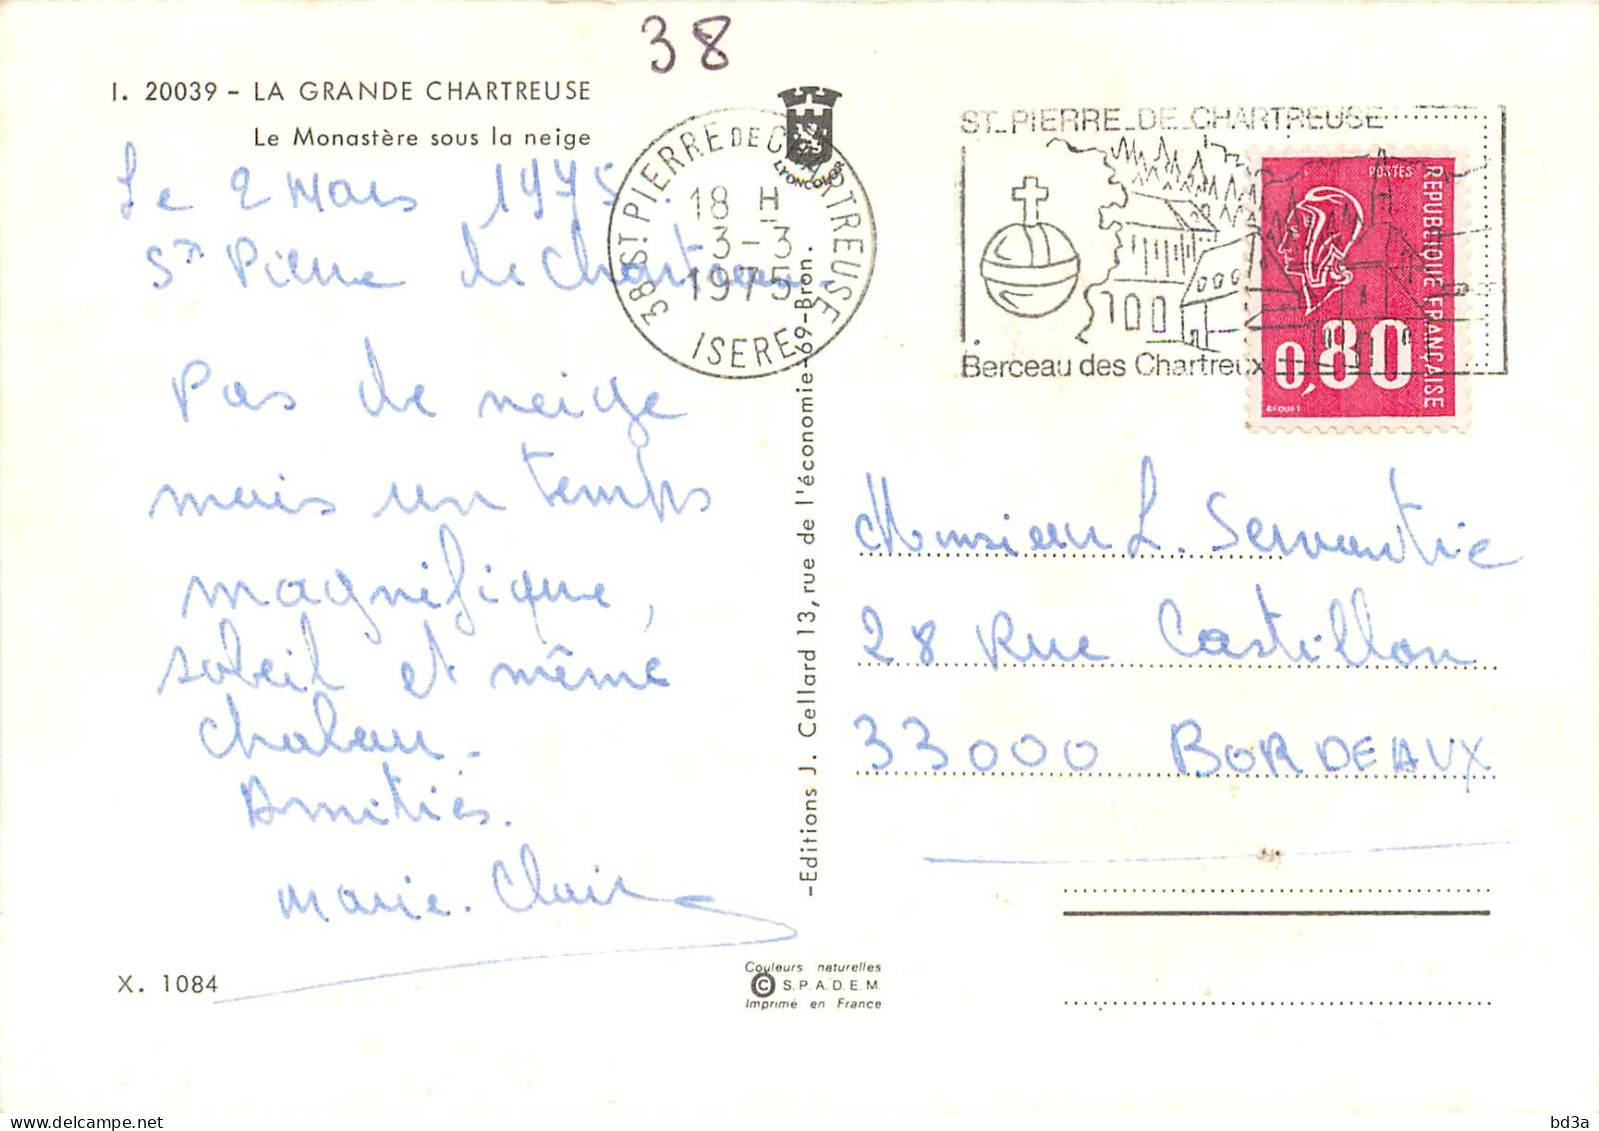 38
I. 20039 - LA GRANDE CHARTREUSE
Le Monastère sous la neige
Le 2 Mars 1975.
St Pierre de Chartreuse.
Pas de neige
mais un temps
magnifique,
soleil et même
chaleur.
Amitiés.
Marie-Claire
X. 1084
LYONCOLOR
38 ST PIERRE DE CHARTREUSE
18 H
3-3
1975
ISERE
-Editions J. Cellard 13, rue de l'économie-69-Bron.
Couleurs naturelles
© S.P.A.D.E.M.
Imprimé en France
ST_PIERRE_DE_CHARTREUSE
Berceau des Chartreux
POSTES
REPUBLIQUE FRANÇAISE
0,80
BEQUET
Monsieur L. Servantie
28 Rue Castillon
33000 BORDEAUX
bd3a